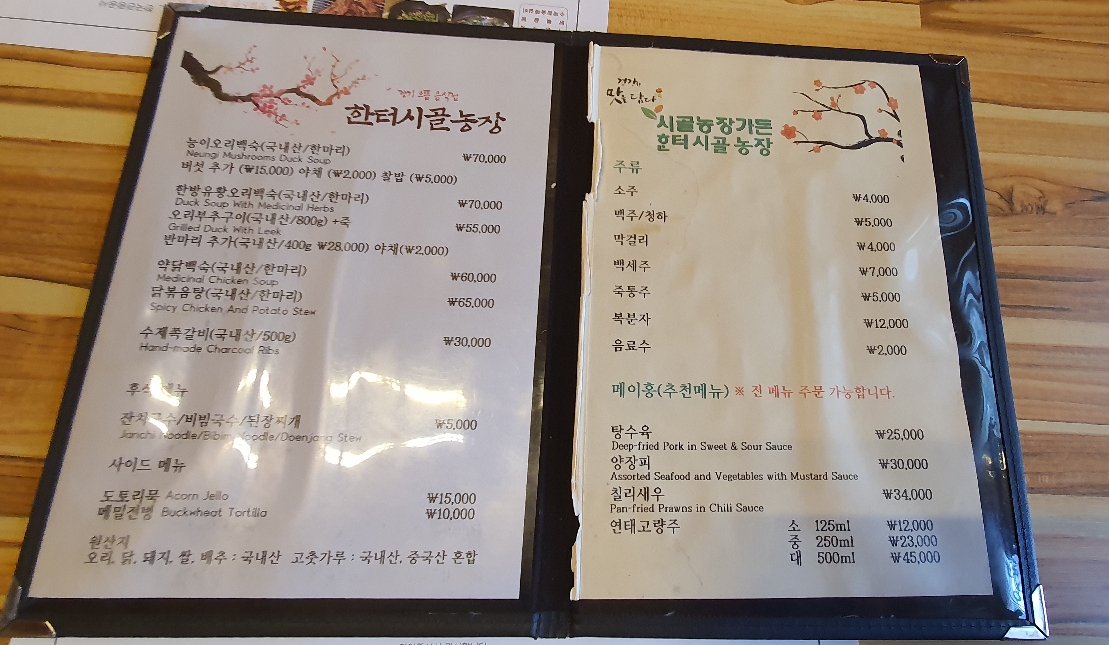 경기 으뜸 음식점
한터시골농장
능이오리백숙(국내산/한마리) ₩70,000
Neungi Mushrooms Duck Soup
버섯 추가 (₩15,000) 야채 (₩2,000) 찰밥 (₩5,000)
한방유황오리백숙(국내산/한마리) ₩70,000
Duck Soup With Medicinal Herbs
오리부추구이(국내산/800g) +죽 ₩55,000
Grilled Duck With Leek
반마리 추가(국내산/400g ₩28,000) 야채(₩2,000)
약닭백숙(국내산/한마리) ₩60,000
Medicinal Chicken Soup
닭볶음탕(국내산/한마리) ₩65,000
Spicy Chicken And Potato Stew
수제쪽갈비(국내산/500g) ₩30,000
Hand-made Charcoal Ribs
후식 메뉴
잔치국수/비빔국수/된장찌개 ₩5,000
Janchi Noodle/Bibim Noodle/Doenjang Stew
사이드 메뉴
도토리묵 Acorn Jello ₩15,000
메밀전병 Buckwheat Tortilla ₩10,000
원산지
오리, 닭, 돼지, 쌀, 배추 : 국내산 고춧가루 : 국내산, 중국산 혼합
맛을 담다
시골농장가든
한터시골농장
주류
소주 ₩4,000
맥주/청하 ₩5,000
막걸리 ₩4,000
백세주 ₩7,000
죽통주 ₩5,000
복분자 ₩12,000
음료수 ₩2,000
메이홍(추천메뉴) ※ 전 메뉴 주문 가능합니다.
탕수육 ₩25,000
Deep-fried Pork in Sweet & Sour Sauce
양장피 ₩30,000
Assorted Seafood and Vegetables with Mustard Sauce
칠리새우 ₩34,000
Pan-fried Prawns in Chili Sauce
연태고량주 소 125ml ₩12,000
중 250ml ₩23,000
대 500ml ₩45,000